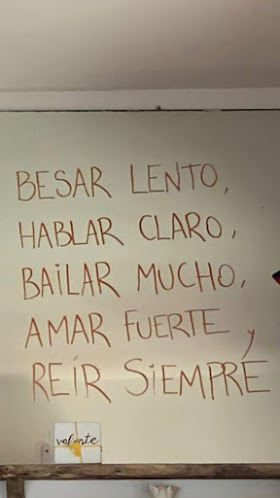 BESAR LENTO,
HABLAR CLARO,
BAILAR MUCHO,
AMAR FUERTE y
REÍR SIEMPRE